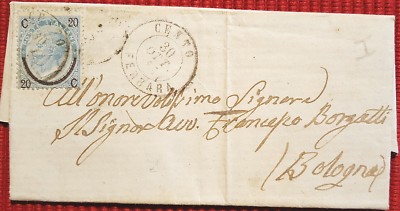 C 20
20 C
CENTO
30
OTT
FERRARA
All'onorevolissimo Signore
Il Signor Avv. Francesco Borgatti
Bologna